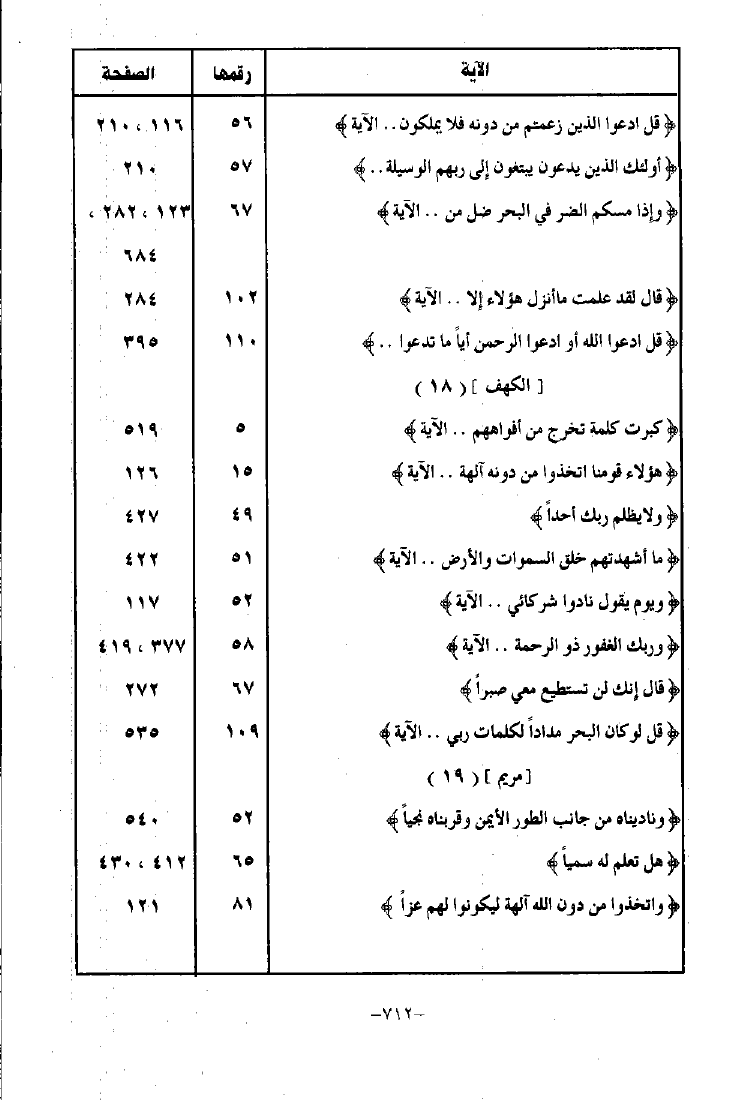 الآية رقمها الصفحة
﴿ قل ادعوا الذين زعمتم من دونه فلا يملكون.. الآية ﴾ ٥٦ ١١٦ ، ٢١٠
﴿ أولئك الذين يدعون يبتغون إلى ربهم الوسيلة.. ﴾ ٥٧ ٢١٠
﴿ وإذا مسكم الضر في البحر ضل من .. الآية ﴾ ٦٧ ١٢٣ ، ٢٨٢ ،
٦٨٤
﴿ قال لقد علمت ماأنزل هؤلاء إلا .. الآية ﴾ ١٠٢ ٢٨٤
﴿ قل ادعوا الله أو ادعوا الرحمن أياً ما تدعوا .. ﴾ ١١٠ ٣٩٥
[ الكهف ] ( ١٨ )
﴿ كبرت كلمة تخرج من أفواههم .. الآية ﴾ ٥ ٥١٩
﴿ هؤلاء قومنا اتخذوا من دونه آلهة .. الآية ﴾ ١٥ ١٢٦
﴿ ولايظلم ربك أحداً ﴾ ٤٩ ٤٢٧
﴿ ما أشهدتهم خلق السموات والأرض .. الآية ﴾ ٥١ ٤٢٢
﴿ ويوم يقول نادوا شركائي .. الآية ﴾ ٥٢ ١١٧
﴿ وربك الغفور ذو الرحمة .. الآية ﴾ ٥٨ ٣٧٧ ، ٤١٩
﴿ قال إنك لن تستطيع معي صبراً ﴾ ٦٧ ٢٧٢
﴿ قل لوكان البحر مداداً لكلمات ربي .. الآية ﴾ ١٠٩ ٥٣٥
[ مريم ] ( ١٩ )
﴿ وناديناه من جانب الطور الأيمن وقربناه نجياً ﴾ ٥٢ ٥٤٠
﴿ هل تعلم له سمياً ﴾ ٦٥ ٤١٢ ، ٤٣٠
﴿ واتخذوا من دون الله آلهة ليكونوا لهم عزاً ﴾ ٨١ ١٢١
–٧١٢–